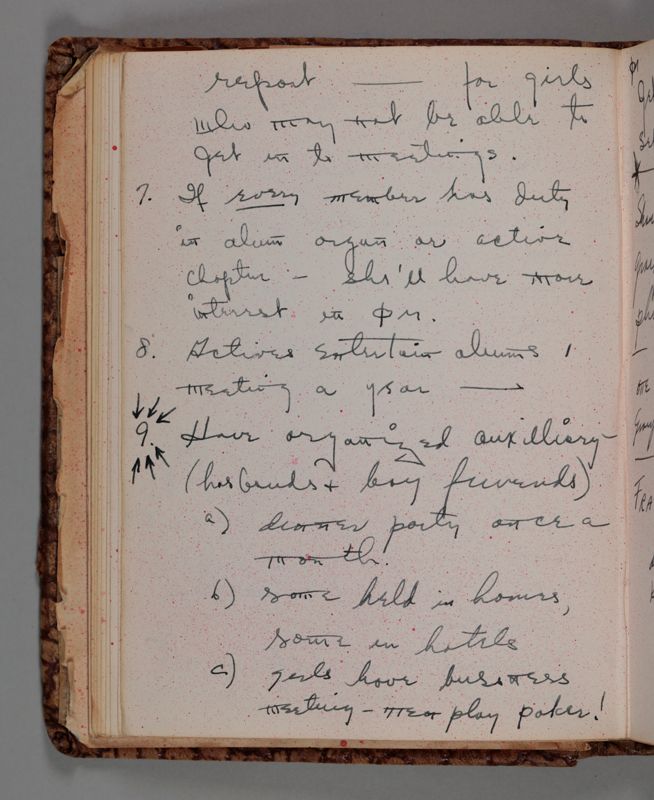 report —— for girls
who may not be able to
get in to meetings.
7. If every member has duty
in alum organ or active
chapter – she'll have more
interest in ΦM.
8. Actives entertain alums 1
meeting a year ——
9. Have organized auxilliary
(husbands + boy friends)
a) dinner party once a
month.
b) some held in homes,
some in hotels
c) girls have business
meeting – men play poker!